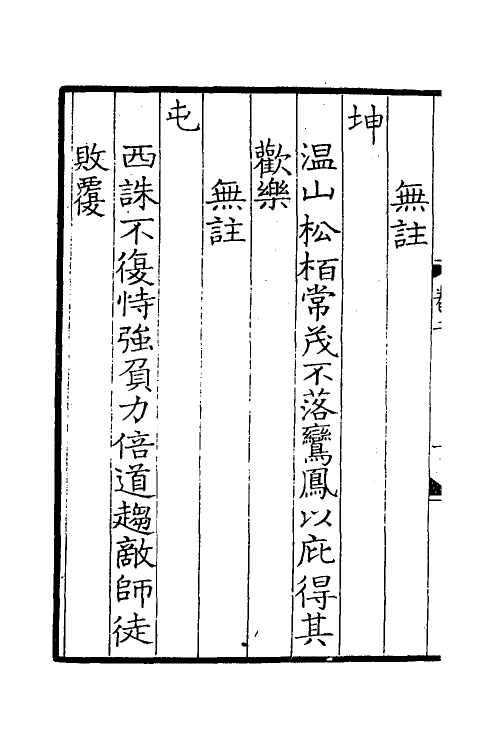 無註
坤
温山松栢常茂不落鸞鳳以庇得其
歡樂
無註
屯
西誅不復恃強負力倍道趨敵師徒
敗覆